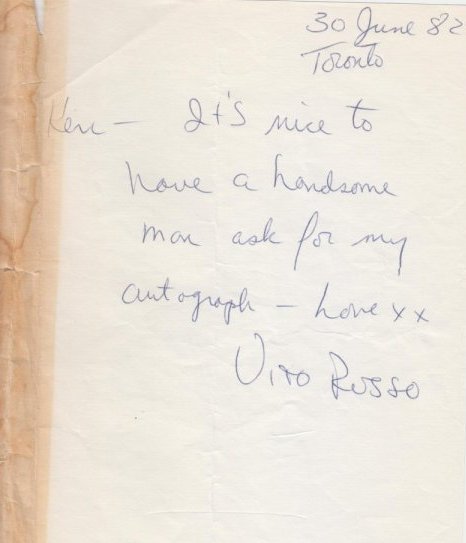 30 June 82
Toronto
Ken — It's nice to
have a handsome
man ask for my
autograph — Love xx
Vito Russo